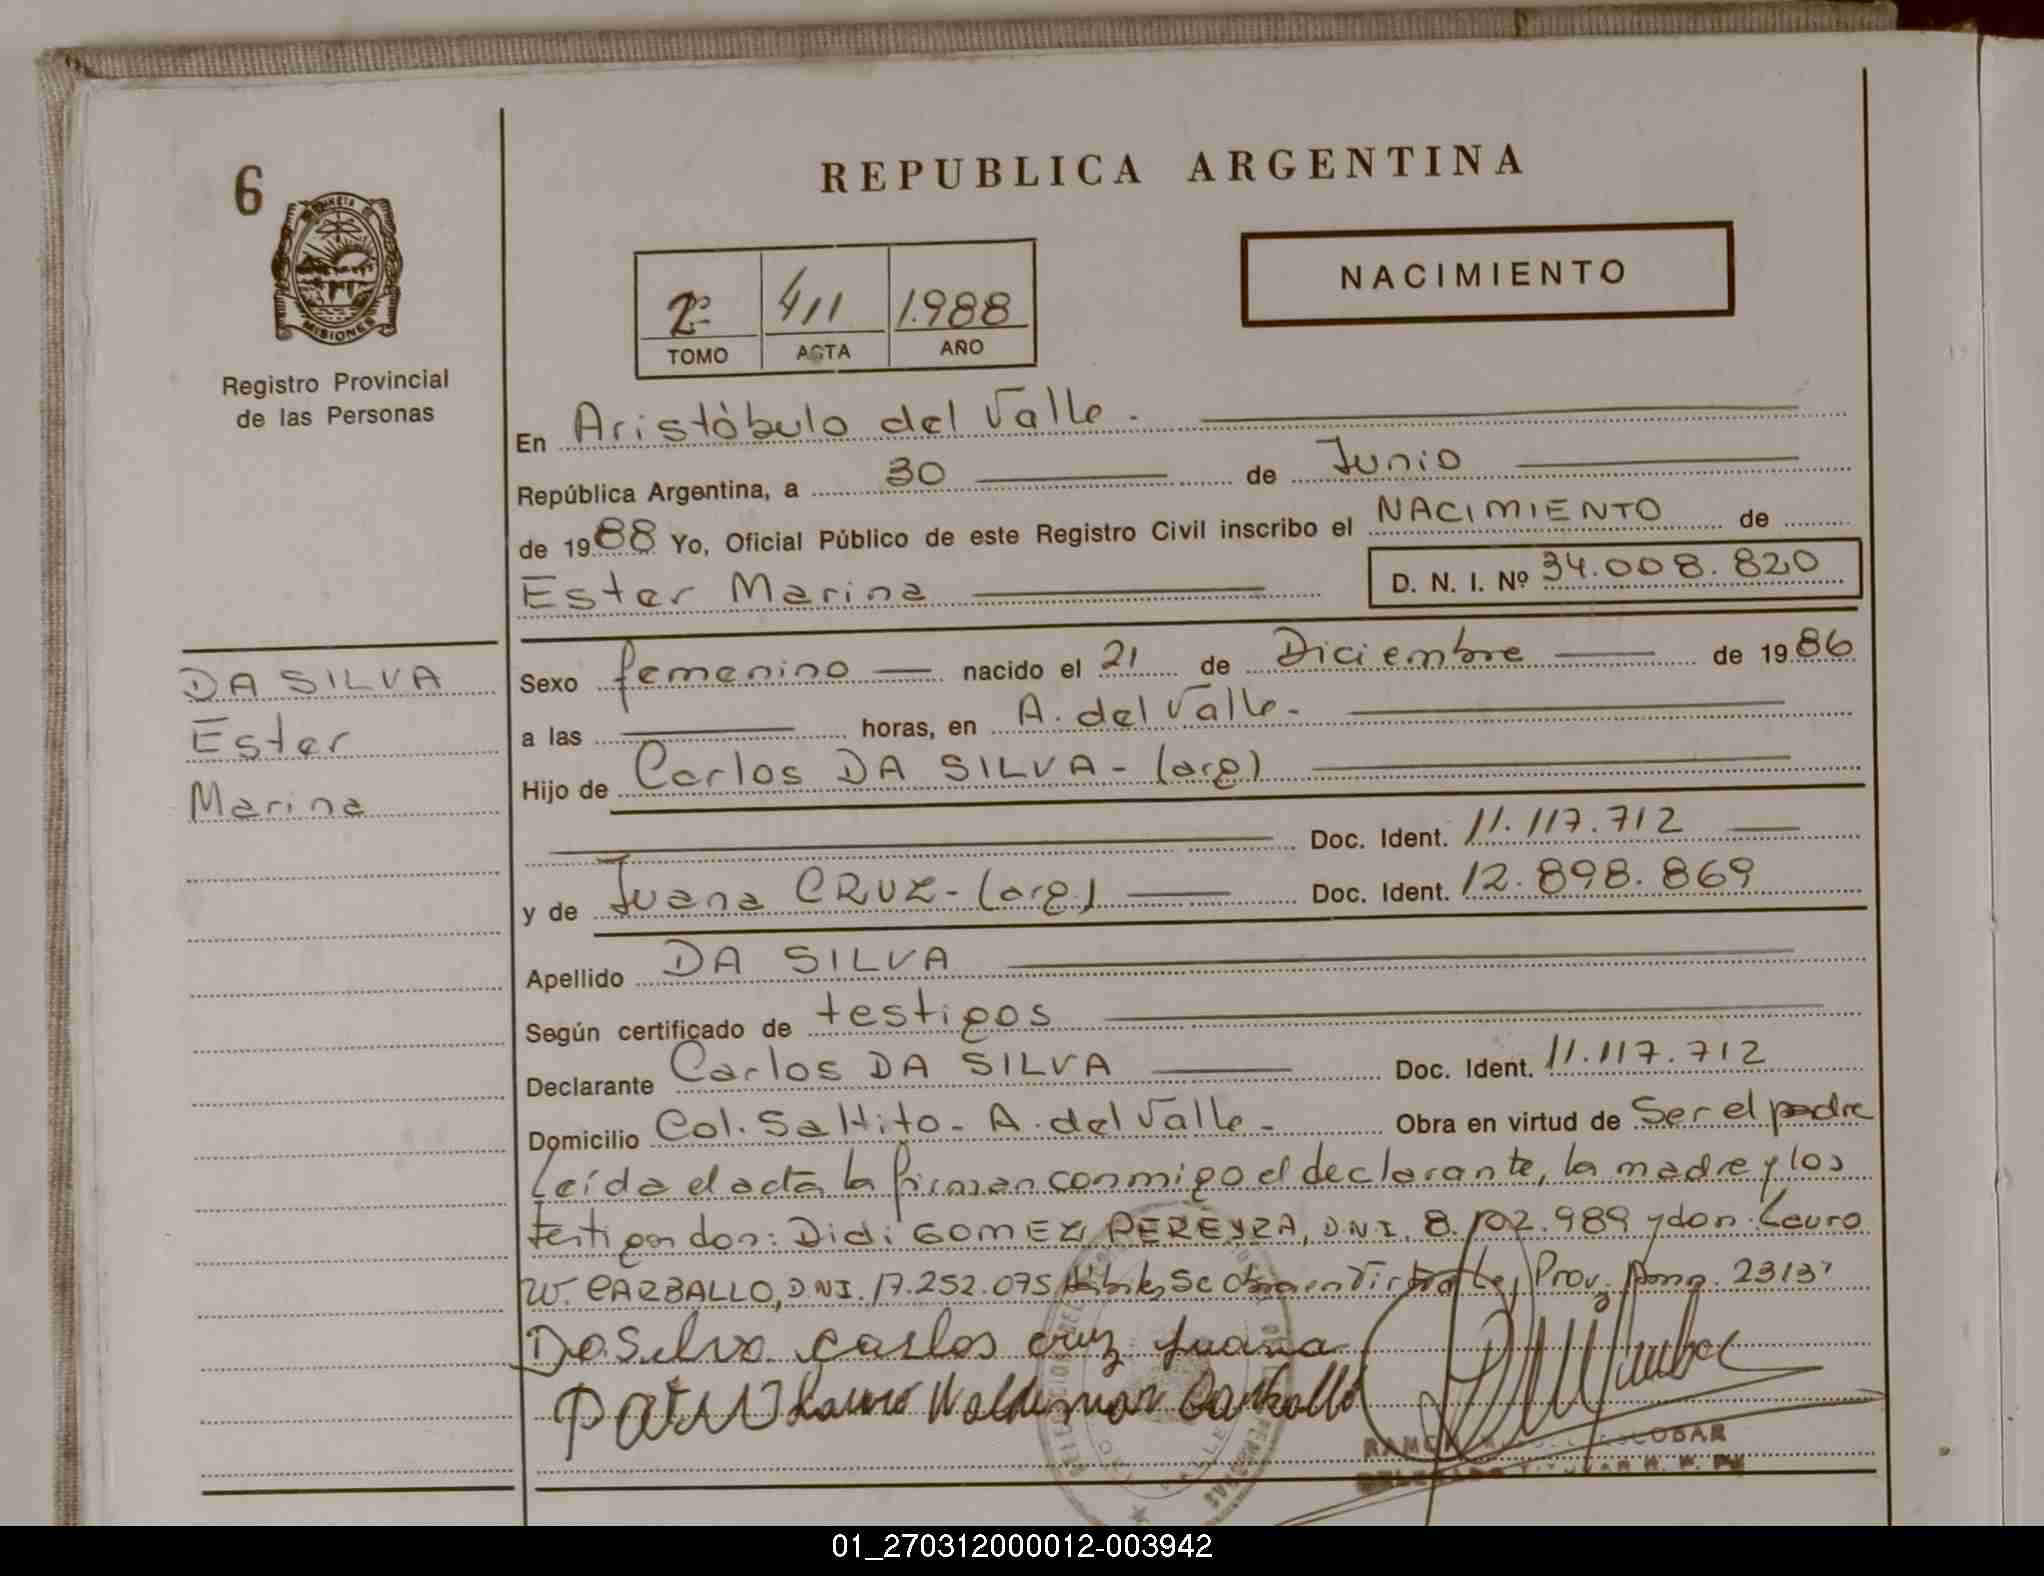 6
MISIONES
Registro Provincial
de las Personas
REPUBLICA ARGENTINA
NACIMIENTO
2º 411 1.988
TOMO ACTA AÑO
En Aristóbulo del Valle.
República Argentina, a 30 de Junio
de 1988 Yo, Oficial Público de este Registro Civil inscribo el NACIMIENTO de
Ester Marina D. N. I. Nº 34.008.820
DA SILVA
Ester
Marina
Sexo femenino nacido el 21 de Diciembre de 1986
a las horas, en A. del Valle.
Hijo de Carlos DA SILVA - (arg)
Doc. Ident. 11.117.712
y de Juana CRUZ - (arg.) Doc. Ident. 12.898.869
Apellido DA SILVA
Según certificado de testigos
Declarante Carlos DA SILVA Doc. Ident. 11.117.712
Domicilio Col. Saltito - A. del Valle - Obra en virtud de Ser el padre
Leída el acta la firman conmigo el declarante, la madre y los
testigos don: Didi GOMEZ PEREYRA, D.N.I. 8.102.989 y don: Lauro
W. CARBALLO, D.N.I. 17.252.075 Se Prov. 2313'
Da Silva Carlos Cruz Juana
Lauro Waldemar Carballo
ESCOBAR
01_270312000012-003942